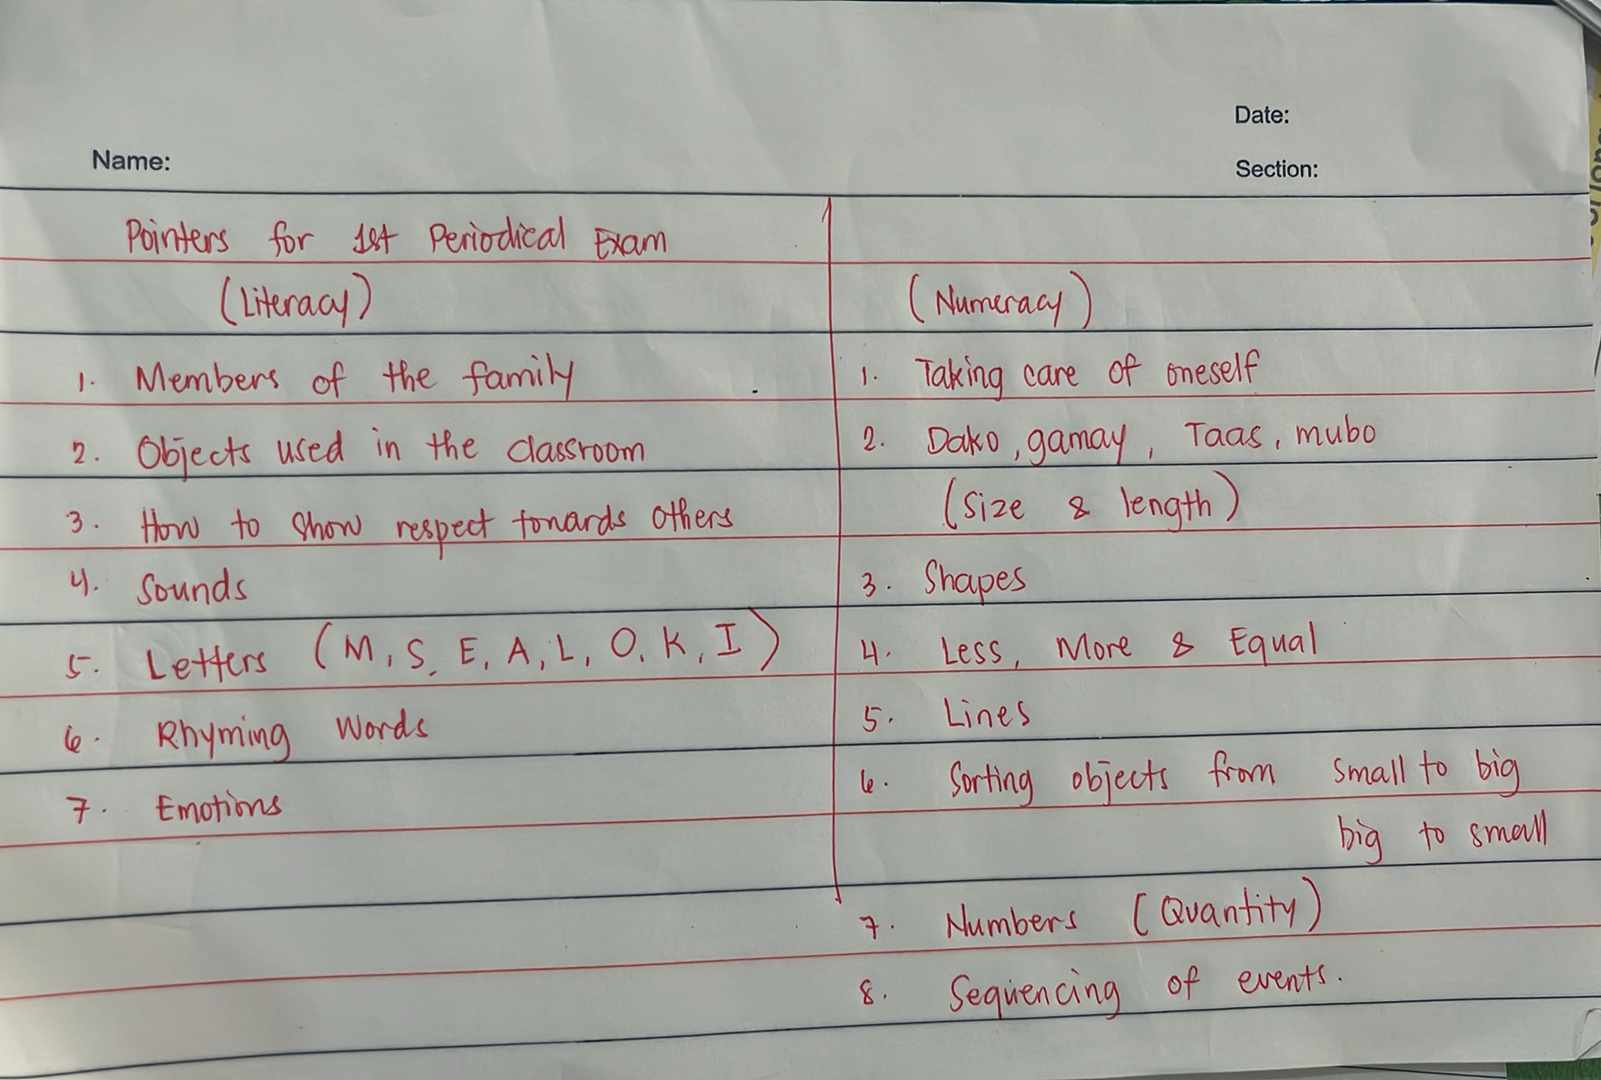 Date:
Name:
Section:
Pointers for 1st Periodical Exam
(Literacy)
1. Members of the family
2. Objects used in the classroom
3. How to show respect towards others
4. Sounds
5. Letters (M, S, E, A, L, O, K, I)
6. Rhyming Words
7. Emotions
(Numeracy)
1. Taking care of oneself
2. Dako, gamay, Taas, mubo
(Size & length)
3. Shapes
4. Less, More & Equal
5. Lines
6. Sorting objects from small to big
big to small
7. Numbers (Quantity)
8. Sequencing of events.